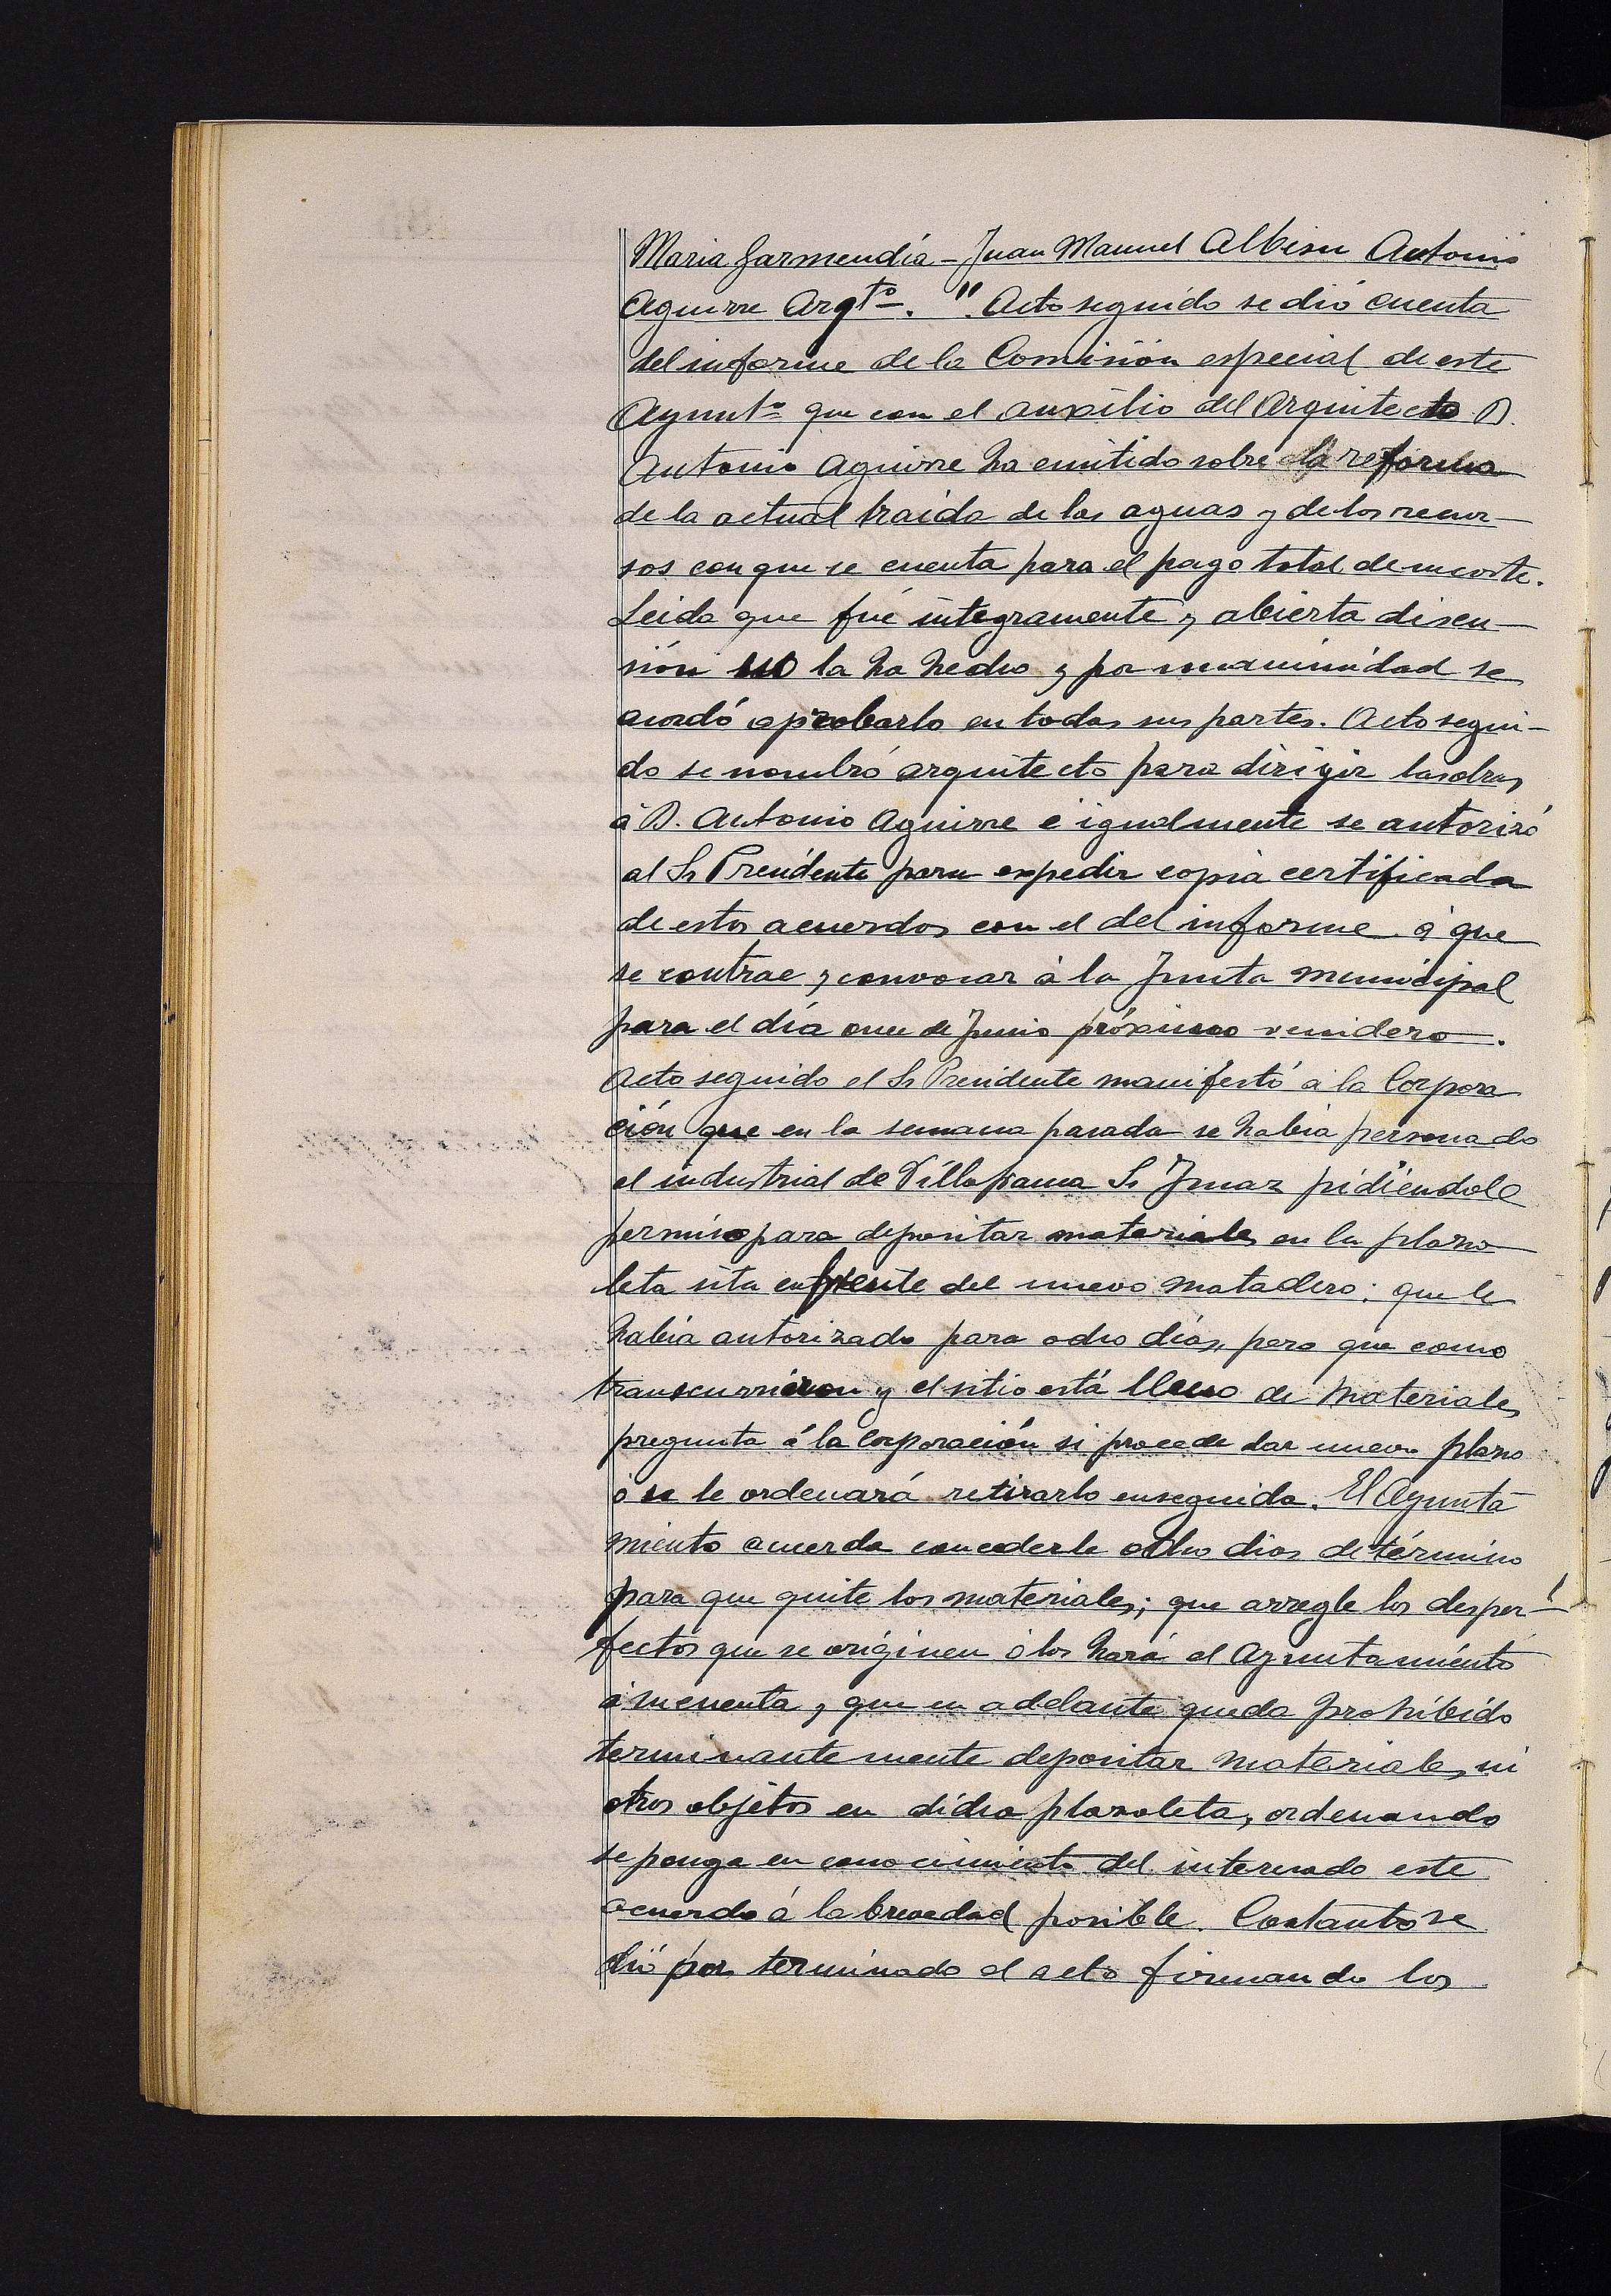 Maria Garmendia - Juan Manuel Albisu Antonio
Aguirre Arqto. " Acto seguido se dió cuenta
del informe de la Comisión especial de este
Ayuntº que con el auxilio del Arquitecto D.
Antonio Aguirre ha emitido sobre la reforma
de la actual traida de las aguas y de los recur-
sos con que se cuenta para el pago total de su coste.
Leido que fué integramente y abierta discu-
sión no la ha hecho y por unanimidad se
acordó aprobarlo en todas sus partes. Acto segui-
do se nombró arquitecto para dirigir las obras
á D. Antonio Aguirre é igualmente se autorizó
al Sr Presidente para expedir copia certificada
de estos acuerdos con el del informe á que
se contrae y convocar á la Junta municipal
para el día once de Junio próximo venidero.
Acto seguido el Sr Presidente manifestó á la Corpora
ción que en la semana pasada se habia personado
el industrial de Villafranca Sr Imaz pidiéndole
permiso para depositar materiales en la plazo
leta sita enfrente del nuevo matadero; que le
habia autorizado para ocho días, pero que como
transcurrieron y el sitio está lleno de materiales
pregunta á la Corporación si procede dar nuevo plazo
ó se le ordenará retirarlo enseguida. El Ayunta
miento acuerda concederle ocho dias de término
para que quite los materiales; que arregle los desper-
fectos que se originen ó los hará el Ayuntamiento
á su cuenta y que en adelante queda prohibido
terminantemente depositar materiales ni
otros objetos en dicha plazoleta, ordenando
se ponga en conocimiento del interesado este
acuerdo á la brevedad posible. Con tanto se
dió por terminado el acto firmando los